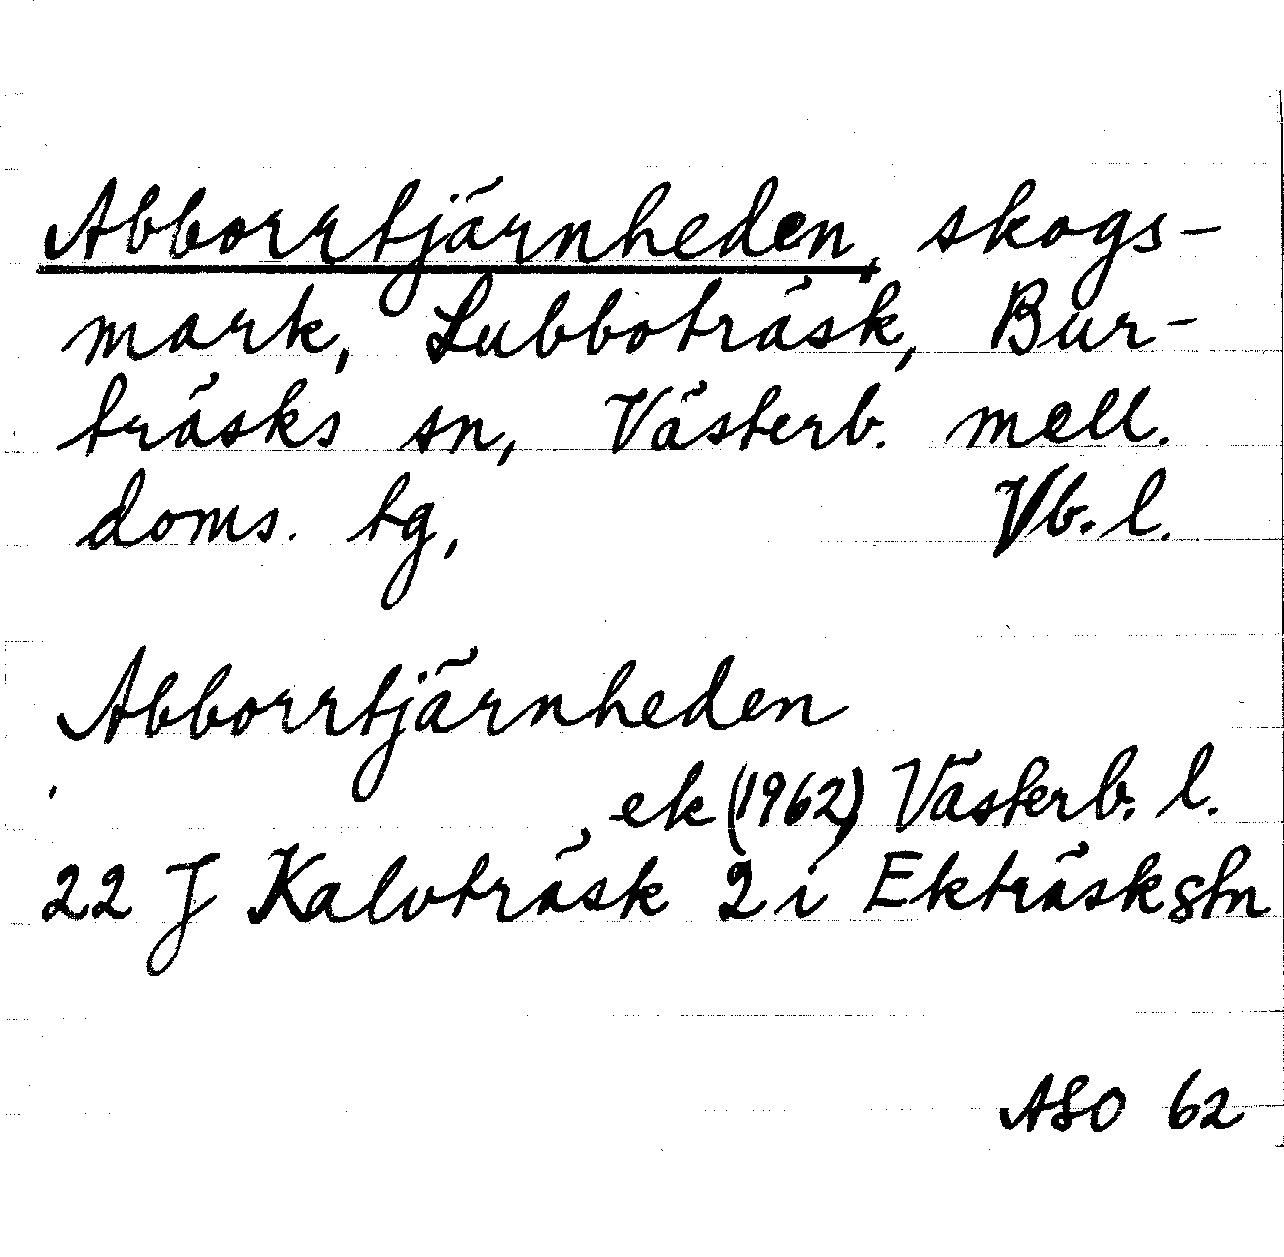 Abborrtjärnheden, skogs-
mark, Lubboträsk, Bur-
träsks sn, Västerb. mell.
doms. tg, Vb. l.
Abborrtjärnheden
, ek (1962) Västerb. l.
22 J Kalvträsk 2 i Ekträsk stn
ASO 62